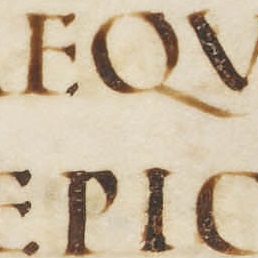 EQV
EPIC